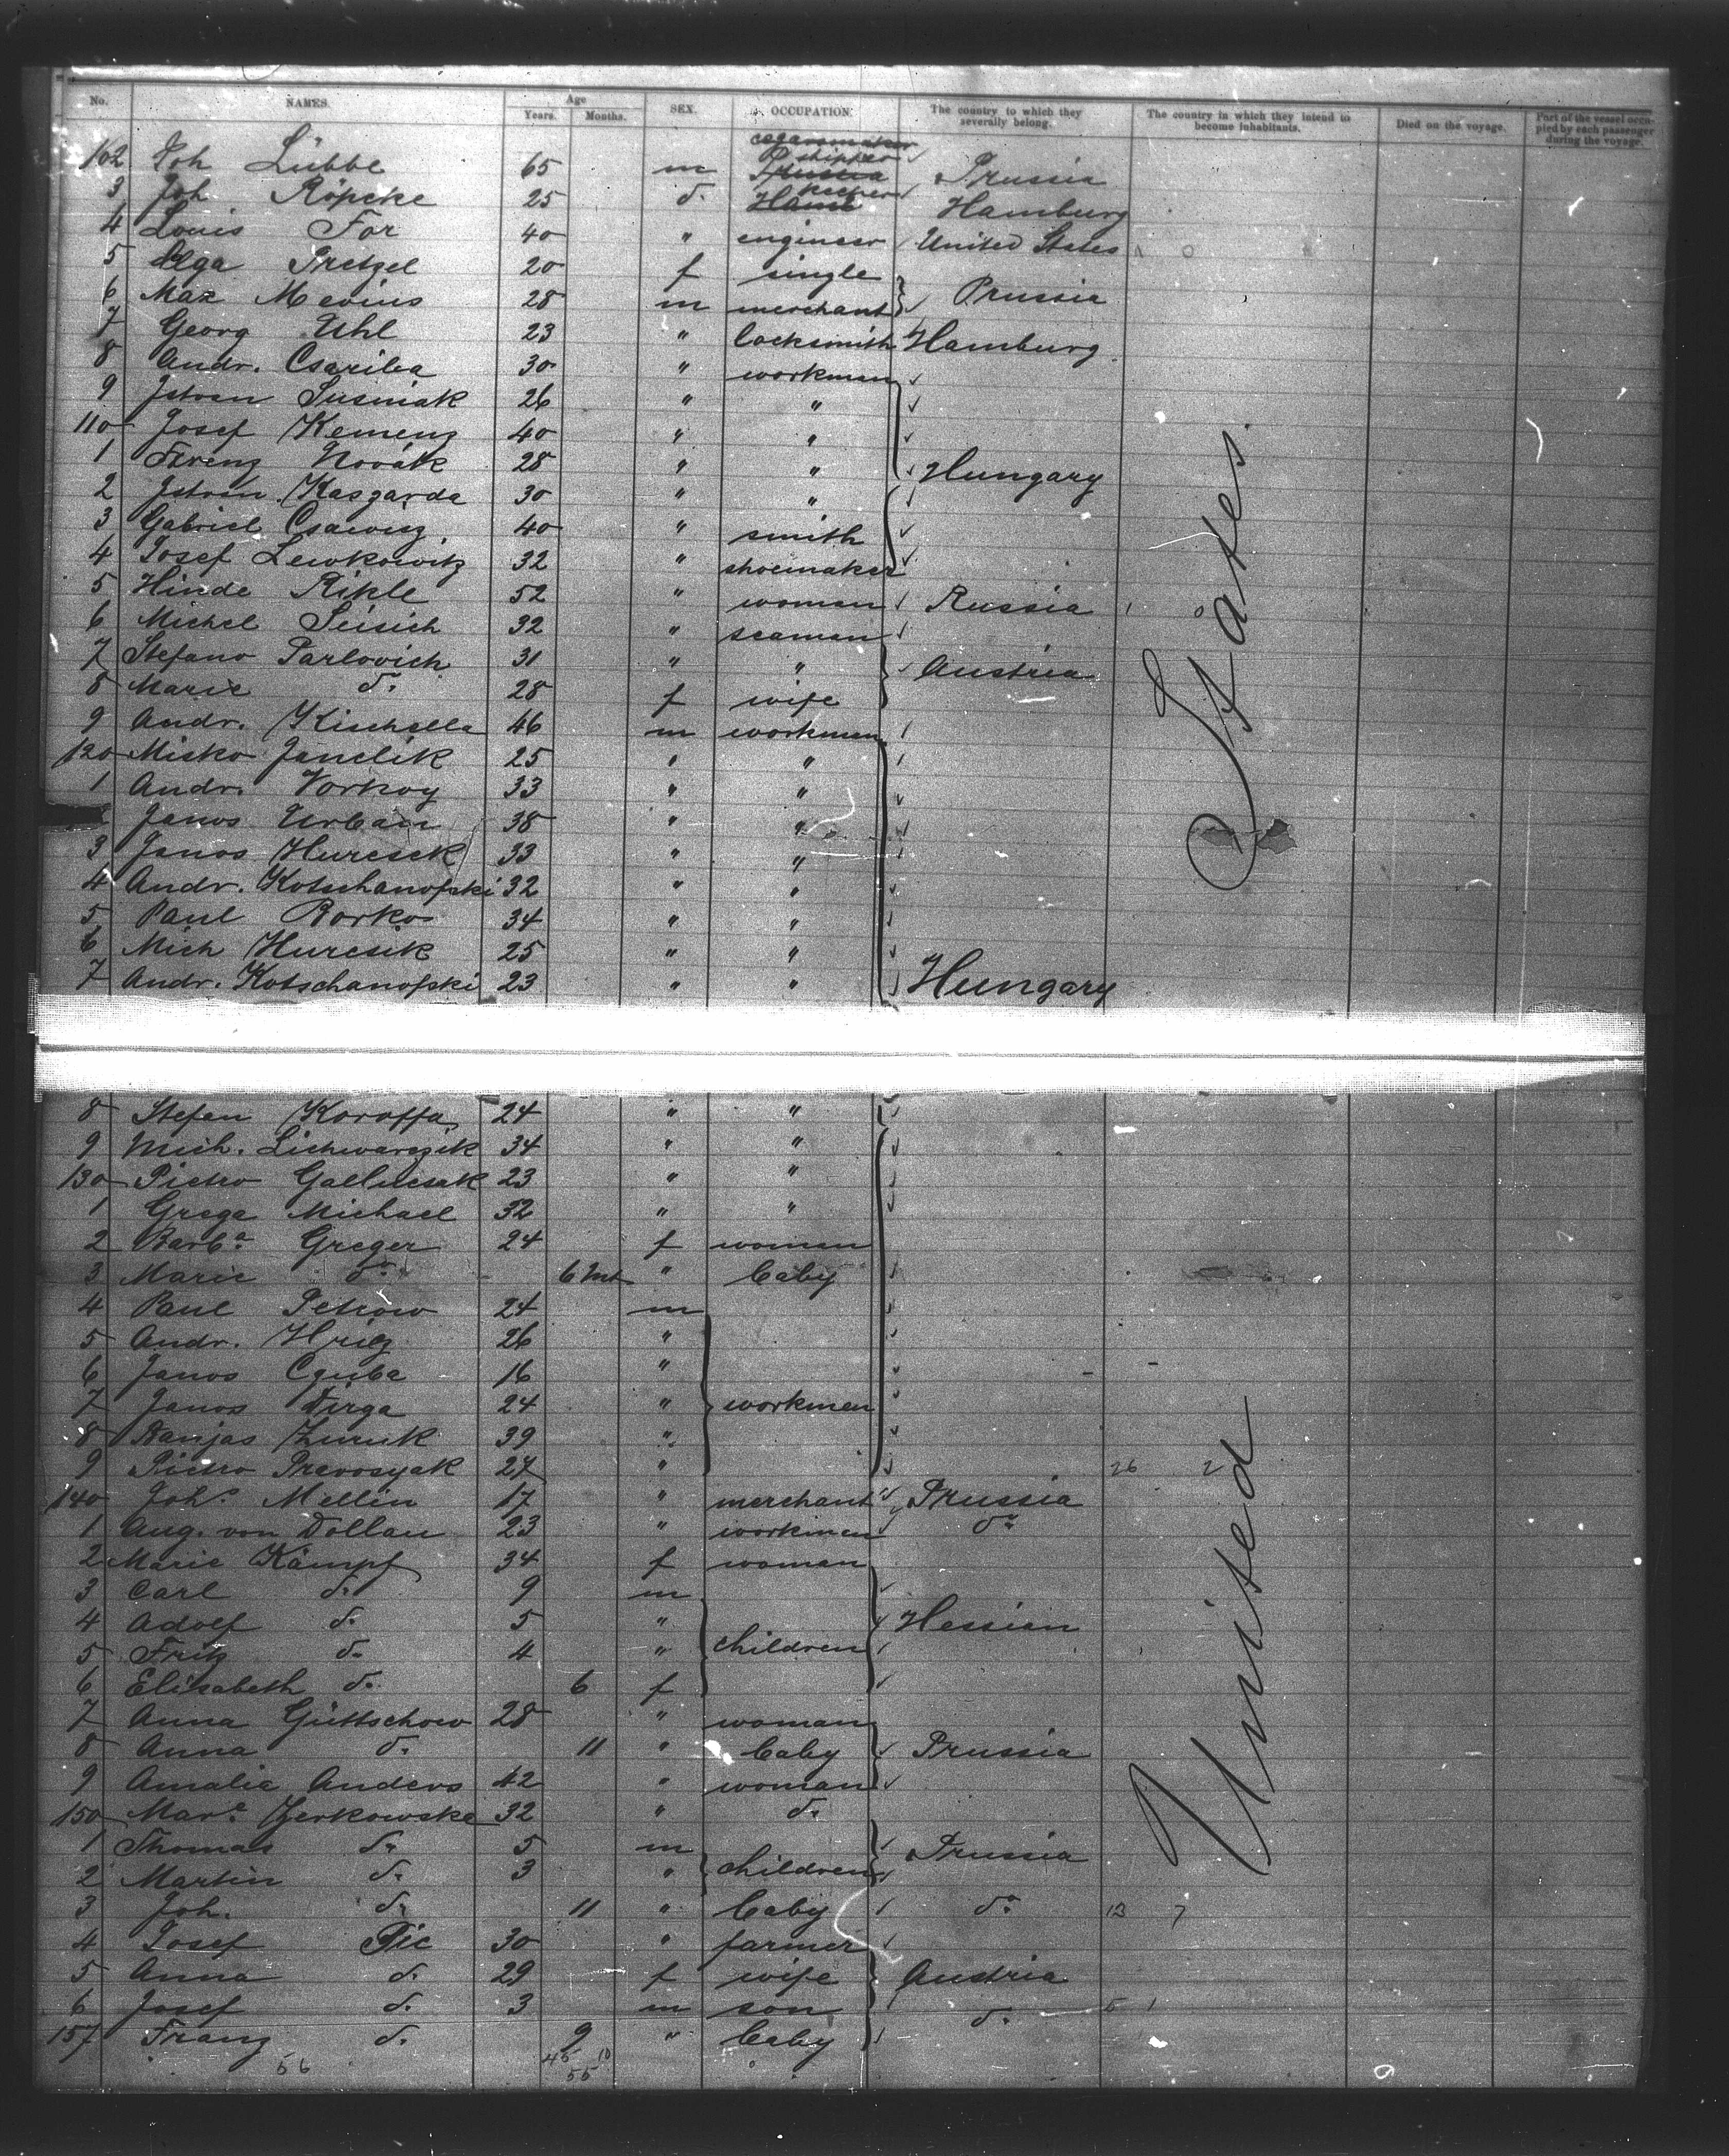 No. NAMES. Age Years. Months. SEX. OCCUPATION. The country to which they severally belong. The country in which they intend to become inhabitants. Died on the voyage. Part of the vessel occupied by each passenger during the voyage.
102 Joh Lübbe 65 m Prussia
3 Joh Röpcke 25 do. keeper Hamburg
4 Louis For 40 " engineer United States
5 Olga Pretzel 20 f single
6 Max Mevius 28 m merchant Prussia
7 Georg Uhl 23 " locksmith Hamburg
8 Andr. Csariba 30 " workman
9 Istvan Susniak 26 " "
110 Josef Kemeny 40 " "
1 Ferenz Novák 28 " " Hungary
2 Istvan Kaszarda 30 " "
3 Gabriel 40 " smith
4 Josef Lewkowitz 32 " shoemaker
5 Hinde Rikle 52 " woman Russia
6 Michel Seisich 32 " seaman
7 Stefano Parlovich 31 " " Austria
8 Marie do. 28 f wife
9 Andr. Kischella 46 m workman
120 Misko Janclik 25 " "
1 Andr. Vorkoy 33 " "
Janos Urban 38 " "
3 Janos Huresek 33 " "
4 Andr. Kotschanofski 32 " "
5 Paul Borkos 34 " "
6 Mich Huresik 25 " "
7 Andr. Kotschanofski 23 " " Hungary
8 Stefan Koroffa 24 " "
9 Mich. Lichwarezik 34 " "
130 Pietro 23 " "
1 Grega Michael 32 " "
2 Barba. Greger 24 f woman
3 Marie do. 6 Mt " baby
4 Paul Petrow 24 m
5 Andr. Hriez 26 "
6 Janos Czuba 16 "
7 Janos Dirga 24 " workmen
8 Zuruk 39 "
9 Pietro 27 " 26 2
140 Johs. Mellin 17 " merchant Prussia
1 Aug. von Dollau 23 " workman do.
2 Marie Kämpf 34 f woman
3 Carl do. 9 m
4 Adolf do. 5 " Hessian
5 Fritz do. 4 " children
6 Elisabeth do. 6 f
7 Anna Güttschow 28 " woman
8 Anna do. 11 " baby Prussia
9 Amalie Anders 42 " woman
150 Mare. Zerkowska 32 " do.
1 Thomas do. 5 m Prussia
2 Martin do. 3 " children
3 Joh. do. 11 " baby do. 13 7
4 Josef Pic 30 " farmer
5 Anna do. 29 f wife Austria
6 Josef do. 3 m son do. 5 1
157 Franz do. 9 " baby
56 45 10
55
United States.